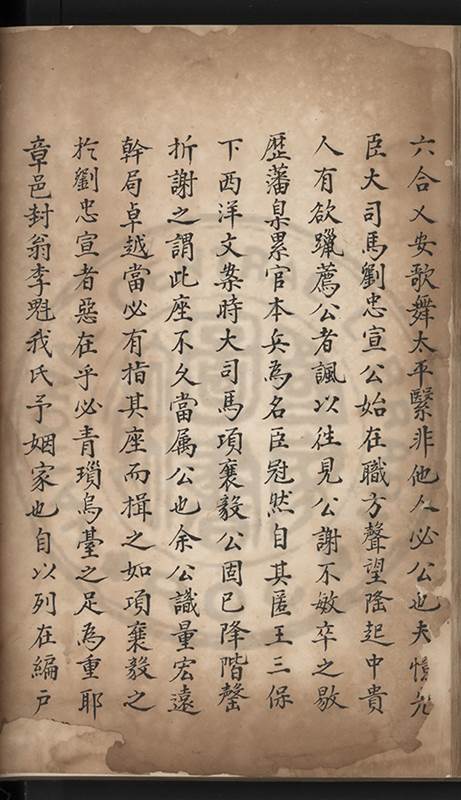 六合乂安歌舞太平繄非他人必公也夫憶先
臣大司馬劉忠宣公始在職方聲望隆起中貴
人有欲躐薦公者諷以往見公謝不敏卒之敭
歷藩臬累官本兵為名臣冠然自其匿王三保
下西洋文案時大司馬項襄毅公固已降階罄
折謝之謂此座不久當属公也余公識量宏遠
幹局卓越當必有指其座而揖之如項襄毅之
於劉忠宣者惡在乎必青瑣烏臺之足為重耶
章邑封翁李魁我氏予姻家也自以列在編户